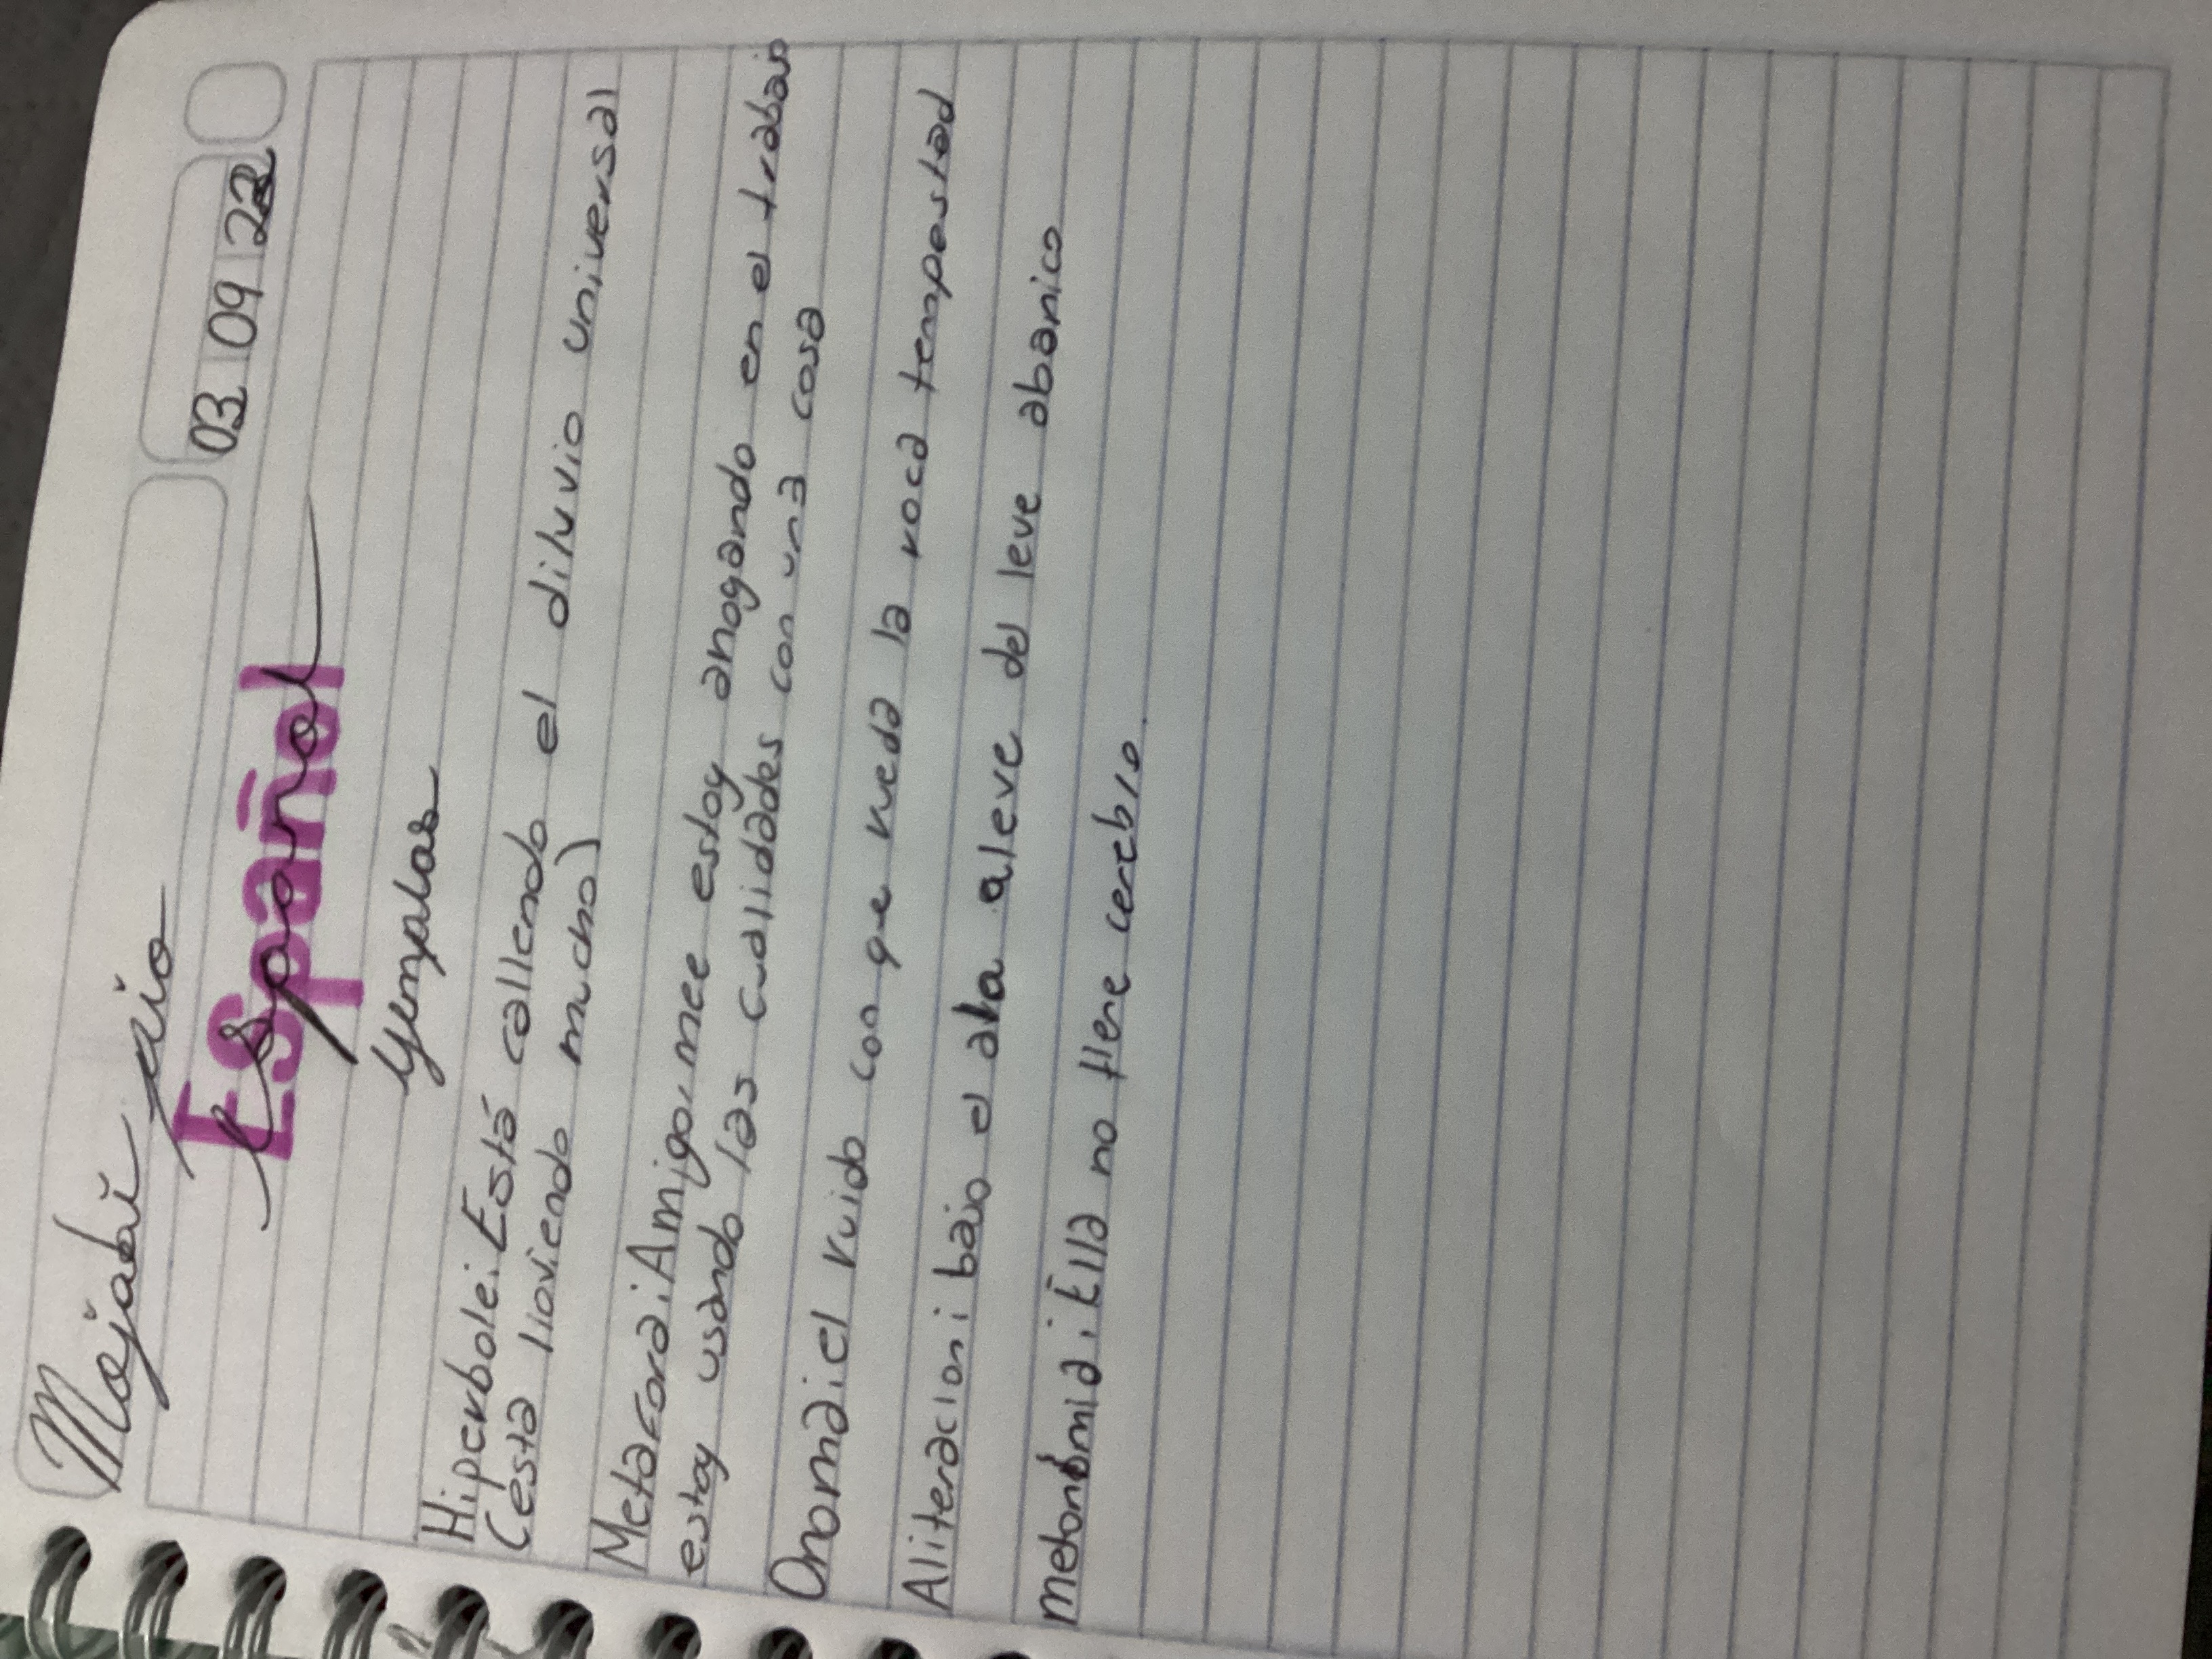 03 09 22
Español
Español
Yemplos
Hiperbole: Está callendo el diluvio universal
(esta lloviendo mucho)
Metafora: Amigo, mee estoy ahogando en el trabajo
estoy usando las cualidades con una cosa
Onoma: el ruido con qe rueda la roca tempestad
Aliteracion: bajo el ala aleve del leve abanico
metonómia: Ella no tiene cerebro